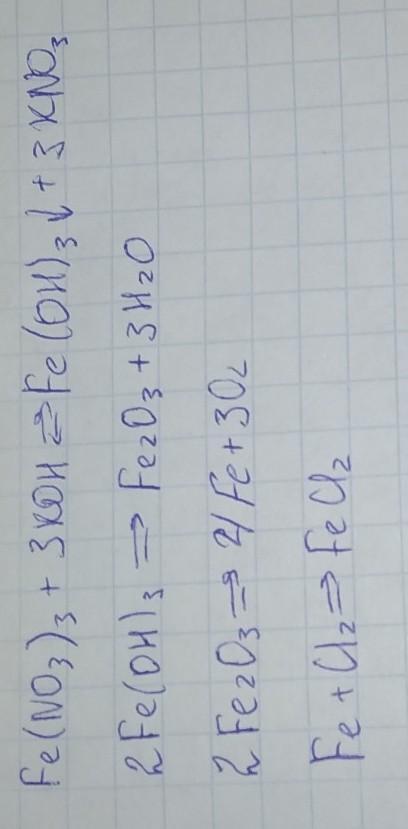 Fe(NO₃)₃ + 3KOH ⇒ Fe(OH)₃↓ + 3KNO₃
2Fe(OH)₃ ⇒ Fe₂O₃ + 3H₂O
2Fe₂O₃ ⇒ 4Fe + 3O₂
Fe + Cl₂ ⇒ FeCl₂